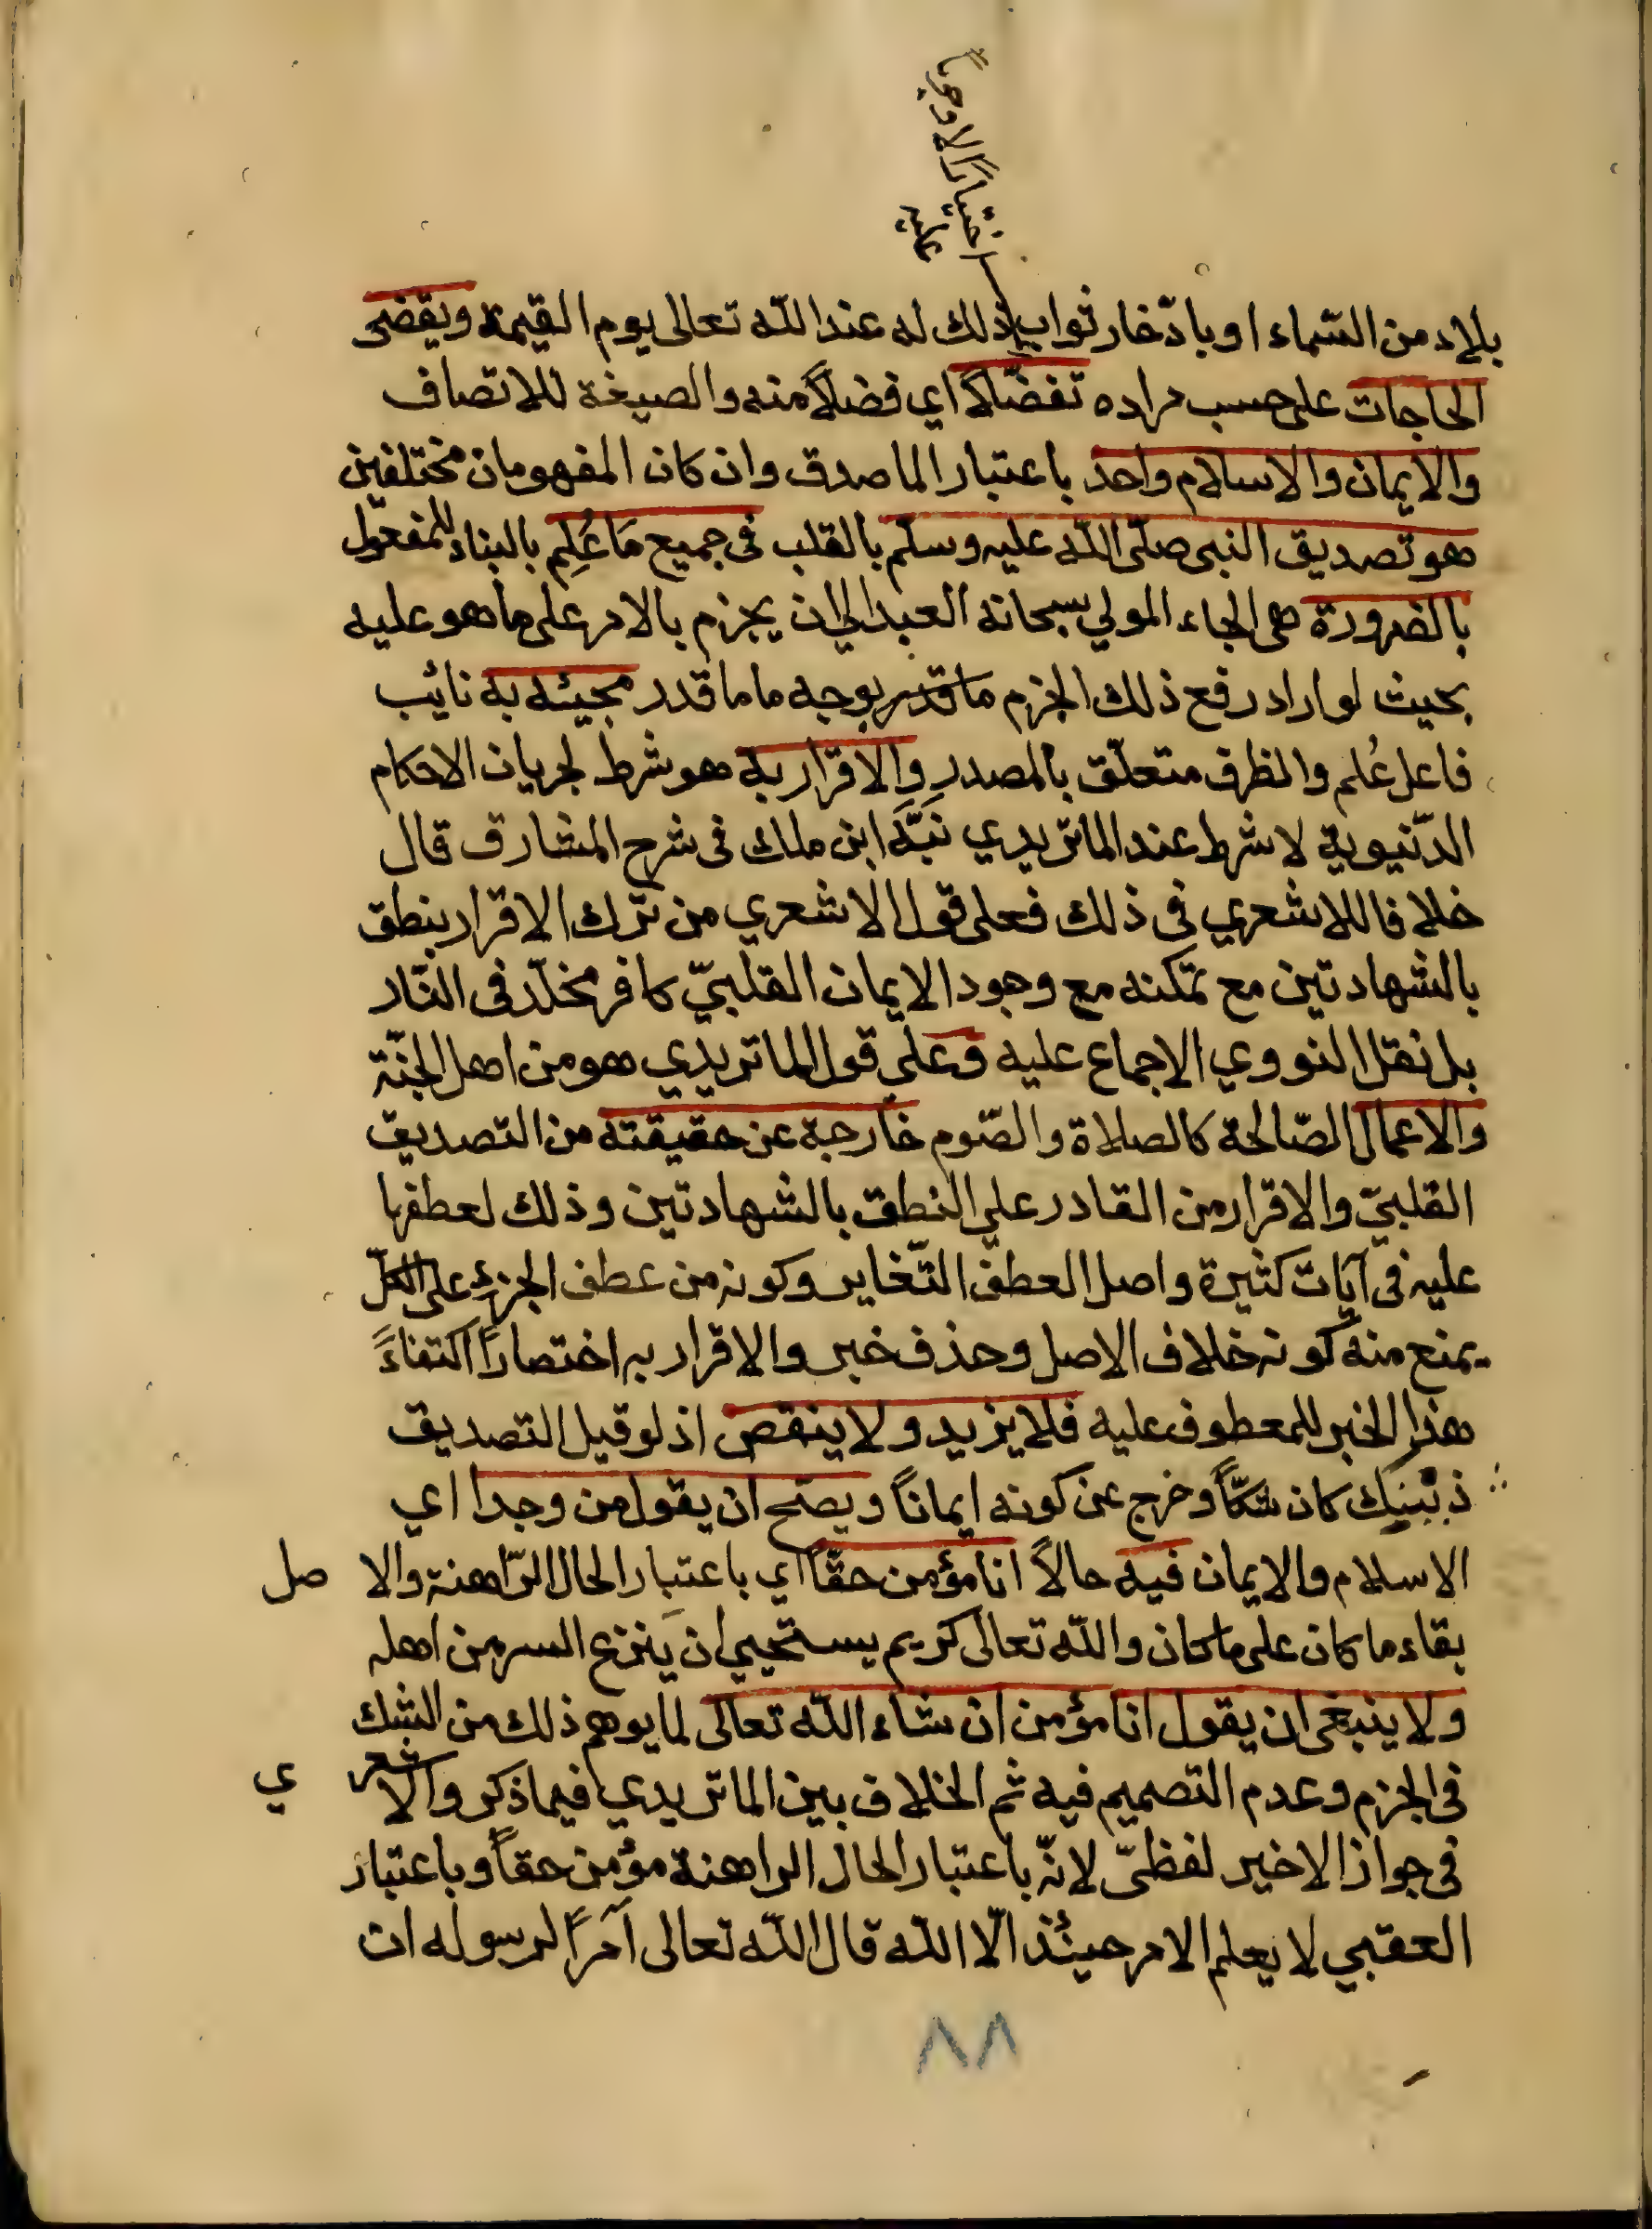 اختيارًا لا وجوبًا
عليه
بلاء من السّماء او بادّخار ثواب ذلك له عند اللّه تعالى يوم القيمة ويقضى
الحاجات على حسب مراده تفضّلاً اي فضلاً منه والصيغة للاتصاف
والايمان والاسلام واحد باعتبار الماصدق وان كان المفهومان مختلفين
هو تصديق النبى صلّى اللّه عليه وسلّم بالقلب فى جميع مَا عُلِم بالبناء للمفعول
بالضرورة هى الجاء المولي سبحانه العبد الى ان يجزم بالامر على ما هو عليه
بحيث لو اراد رفع ذلك الجزم ما قدر بوجه ما ما قدر مجيئه به نائب
فاعل عُلم والظرف متعلّق بالمصدر والاقرار به هو شرط لجريان الاحكام
الدّنيوية لا شرط عند الماتريدي نبَّه ابن ملك فى شرح المشارق قال
خلافا للاشعري فى ذلك فعلى قول الاشعري من ترك الاقرار بنطق
بالشهادتين مع تمكنه مع وجود الايمان القلبيّ كافر مخلّد فى النّار
بل نقل النووي الاجماع عليه وعلى قول الماتريدي هو من اهل الجنّة
والاعمال الصّالحة كالصلاة والصّوم خارجة عن حقيقته من التصديق
القلبيّ والاقرار من القادر على النطق بالشهادتين وذلك لعطفها
عليه فى آيات كثيرة واصل العطف التّغاير وكونه من عطف الجزء على الكلّ
يمنع منه كونه خلاف الاصل وحذف خبر والاقرار به اختصارًا اكتفاءً
هذا الخبر للمعطوف عليه فلا يزيد ولا ينقص اذ لو قيل التصديق
ذ بينك كان شكّاً وخرج عن كونه ايماناً ويصّح ان يقول من وجدا اي
الاسلام والايمان فيه حالاً انا مؤمن حقّاً اي باعتبار الحال الرّاهنة والاصل
بقاء ما كان على ما كان واللّه تعالى كريم يستحيي ان ينزع السر من اهله
ولا ينبغى ان يقول انا مؤمن ان شاء اللّه تعالى لما يوهم ذلك من الشك
فى الجزم وعدم التصميم فيه ثم الخلاف بين الماتريدي فيما ذكر والاشعري
فى جواز الاخير لفظىّ لانّه باعتبار الحال الراهنة مؤمن حقاً وباعتبار
العقبي لا يعلم الامر حينئذ الّا اللّه قال اللّه تعالى آمرًا لرسوله ان
٨٨